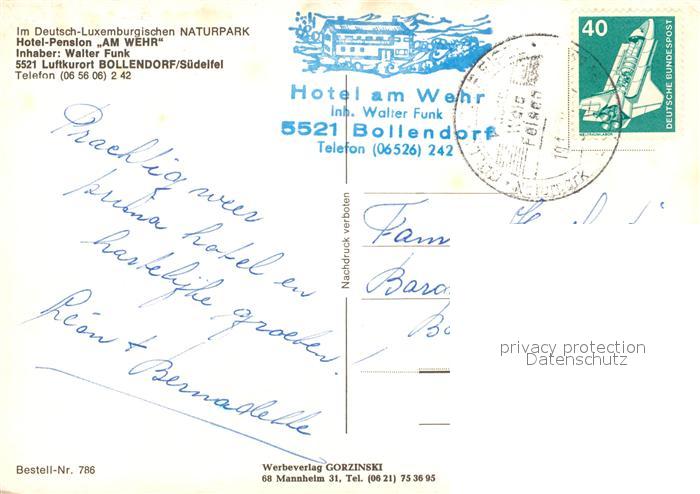 Im Deutsch-Luxemburgischen NATURPARK
Hotel-Pension „AM WEHR"
Inhaber: Walter Funk
5521 Luftkurort BOLLENDORF/Südeifel
Telefon (06 56 06) 2 42
Hotel am Wehr
Inh. Walter Funk
5521 Bollendorf
Telefon (06526) 242
40
DEUTSCHE BUNDESPOST
Felsen
Nachdruck verboten
Prachtig weer
prima hotel en
hartelijke groeten.
Léon + Bernadette
Fam
Bara
Bo
privacy protection
Datenschutz
Bestell-Nr. 786
Werbeverlag GORZINSKI
68 Mannheim 31, Tel. (06 21) 75 36 95